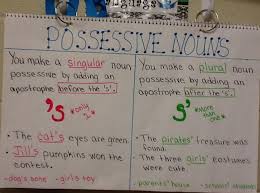 POSSESSIVE NOUNS
You make a singular noun
possessive by adding an
apostrophe before the 's'.
's *only
The cat's eyes are green.
Jill's pumpkins won the
contest.
-dog's bone -girl's toy
You make a plural noun
possessive by adding an
apostrophe after the 's'.
s' *more
than
one*
The pirates' treasure was
found.
The three girls' costumes
were cute.
-parents' house